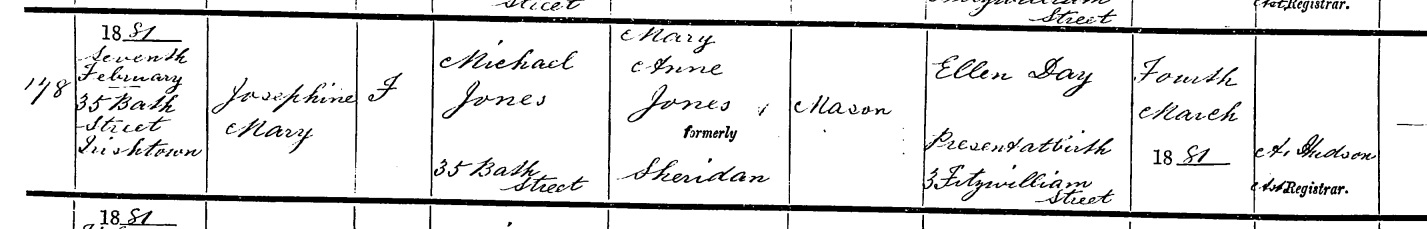 Street
Street
Asst. Registrar.
148
1881
Seventh
February
35 Bath
Street
Irishtown
Josephine
Mary
F
Michael
Jones
35 Bath
Street
Mary
Anne
Jones
formerly
Sheridan
Mason
Ellen Day
Present at birth
3 Fitzwilliam
Street
Fourth
March
1881
A. Hudson
Asst Registrar.
1881